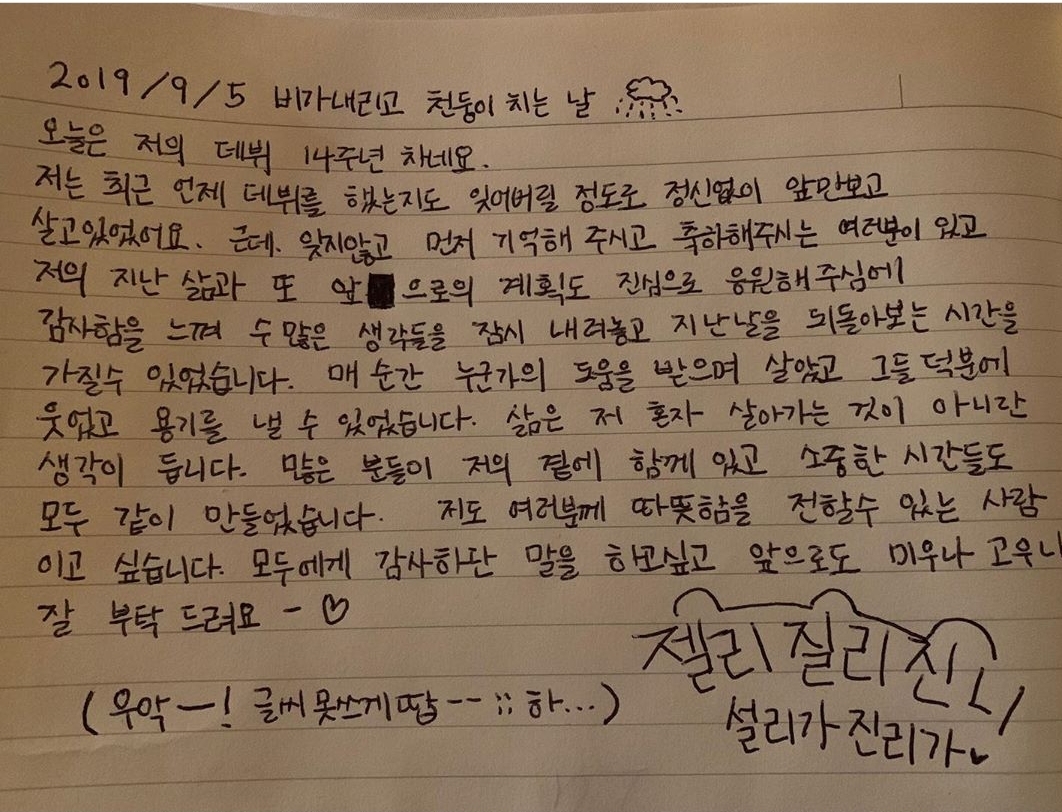 2019/9/5 비가내리고 천둥이 치는 날
오늘은 저의 데뷔 14주년 차네요.
저는 최근 언제 데뷔를 했는지도 잊어버릴 정도로 정신없이 앞만보고
살고있었어요. 근데. 잊지않고 먼저 기억해 주시고 축하해주시는 여러분이 있고
저의 지난 삶과 또 앞으로의 계획도 진심으로 응원해주심에
감사함을 느껴 수많은 생각들을 잠시 내려놓고 지난날을 되돌아보는 시간을
가질수 있었습니다. 매 순간 누군가의 도움을 받으며 살았고 그들 덕분에
웃었고 용기를 낼 수 있었습니다. 삶은 저 혼자 살아가는 것이 아니란
생각이 듭니다. 많은 분들이 저의 곁에 함께 있고 소중한 시간들도
모두 같이 만들었습니다. 저도 여러분께 따뜻함을 전할수 있는 사람
이고 싶습니다. 모두에게 감사하단 말을 하고싶고 앞으로도 미우나 고우나
잘 부탁 드려요 - ♡
젤리질리진
(우악-! 글씨못쓰게땁--;; 하...)
설리가진리가